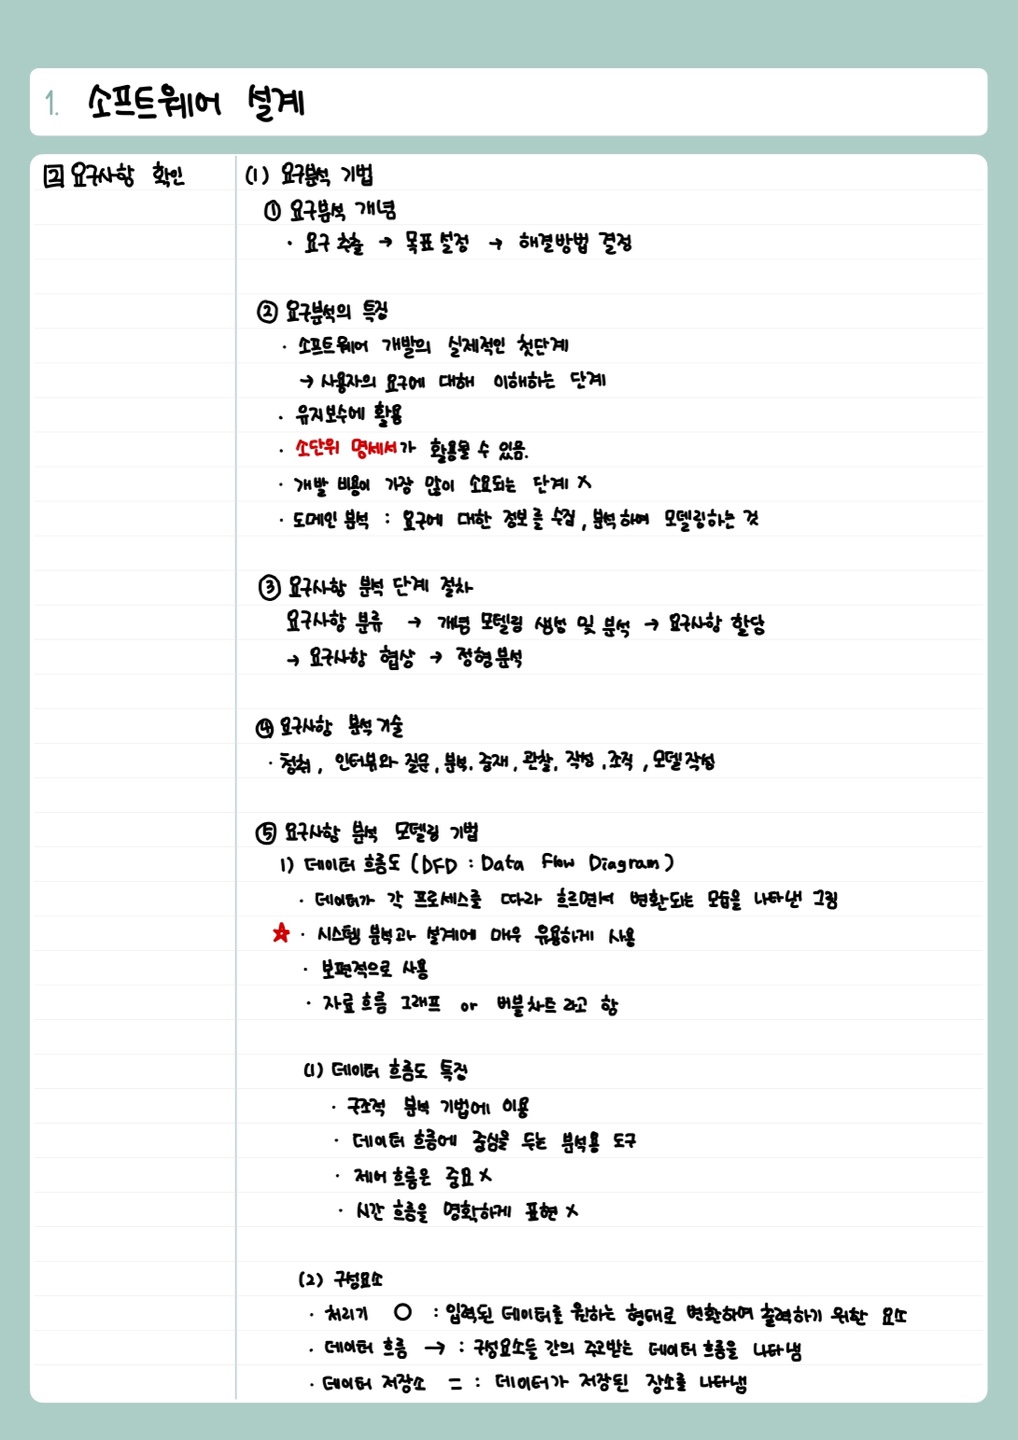 1. 소프트웨어 설계
2 요구사항 확인
(1) 요구분석 기법
① 요구분석 개념
· 요구 추출 → 목표 설정 → 해결방법 결정
② 요구분석의 특징
· 소프트웨어 개발의 실제적인 첫단계
→ 사용자의 요구에 대해 이해하는 단계
· 유지보수에 활용
· 소단위 명세서가 활용될 수 있음.
· 개발 비용이 가장 많이 소요되는 단계 X
· 도메인 분석 : 요구에 대한 정보를 수집, 분석하여 모델링하는 것
③ 요구사항 분석 단계 절차
요구사항 분류 → 개념 모델링 생성 및 분석 → 요구사항 할당
→ 요구사항 협상 → 정형분석
④ 요구사항 분석기술
· 청취, 인터뷰와 질문, 분석, 중재, 관찰, 작성, 조직, 모델작성
⑤ 요구사항 분석 모델링 기법
1) 데이터 흐름도 (DFD : Data Flow Diagram)
· 데이터가 각 프로세스를 따라 흐르면서 변환되는 모습을 나타낸 그림
☆ · 시스템 분석과 설계에 매우 유용하게 사용
· 보편적으로 사용
· 자료 흐름 그래프 or 버블차트라고 함
(1) 데이터 흐름도 특징
· 구조적 분석 기법에 이용
· 데이터 흐름에 중심을 두는 분석용 도구
· 제어 흐름은 중요 X
· 시간 흐름을 명확하게 표현 X
(2) 구성요소
· 처리기 ○ : 입력된 데이터를 원하는 형태로 변환하여 출력하기 위한 요소
· 데이터 흐름 → : 구성요소들 간의 주고받는 데이터 흐름을 나타냄
· 데이터 저장소 = : 데이터가 저장된 장소를 나타냄